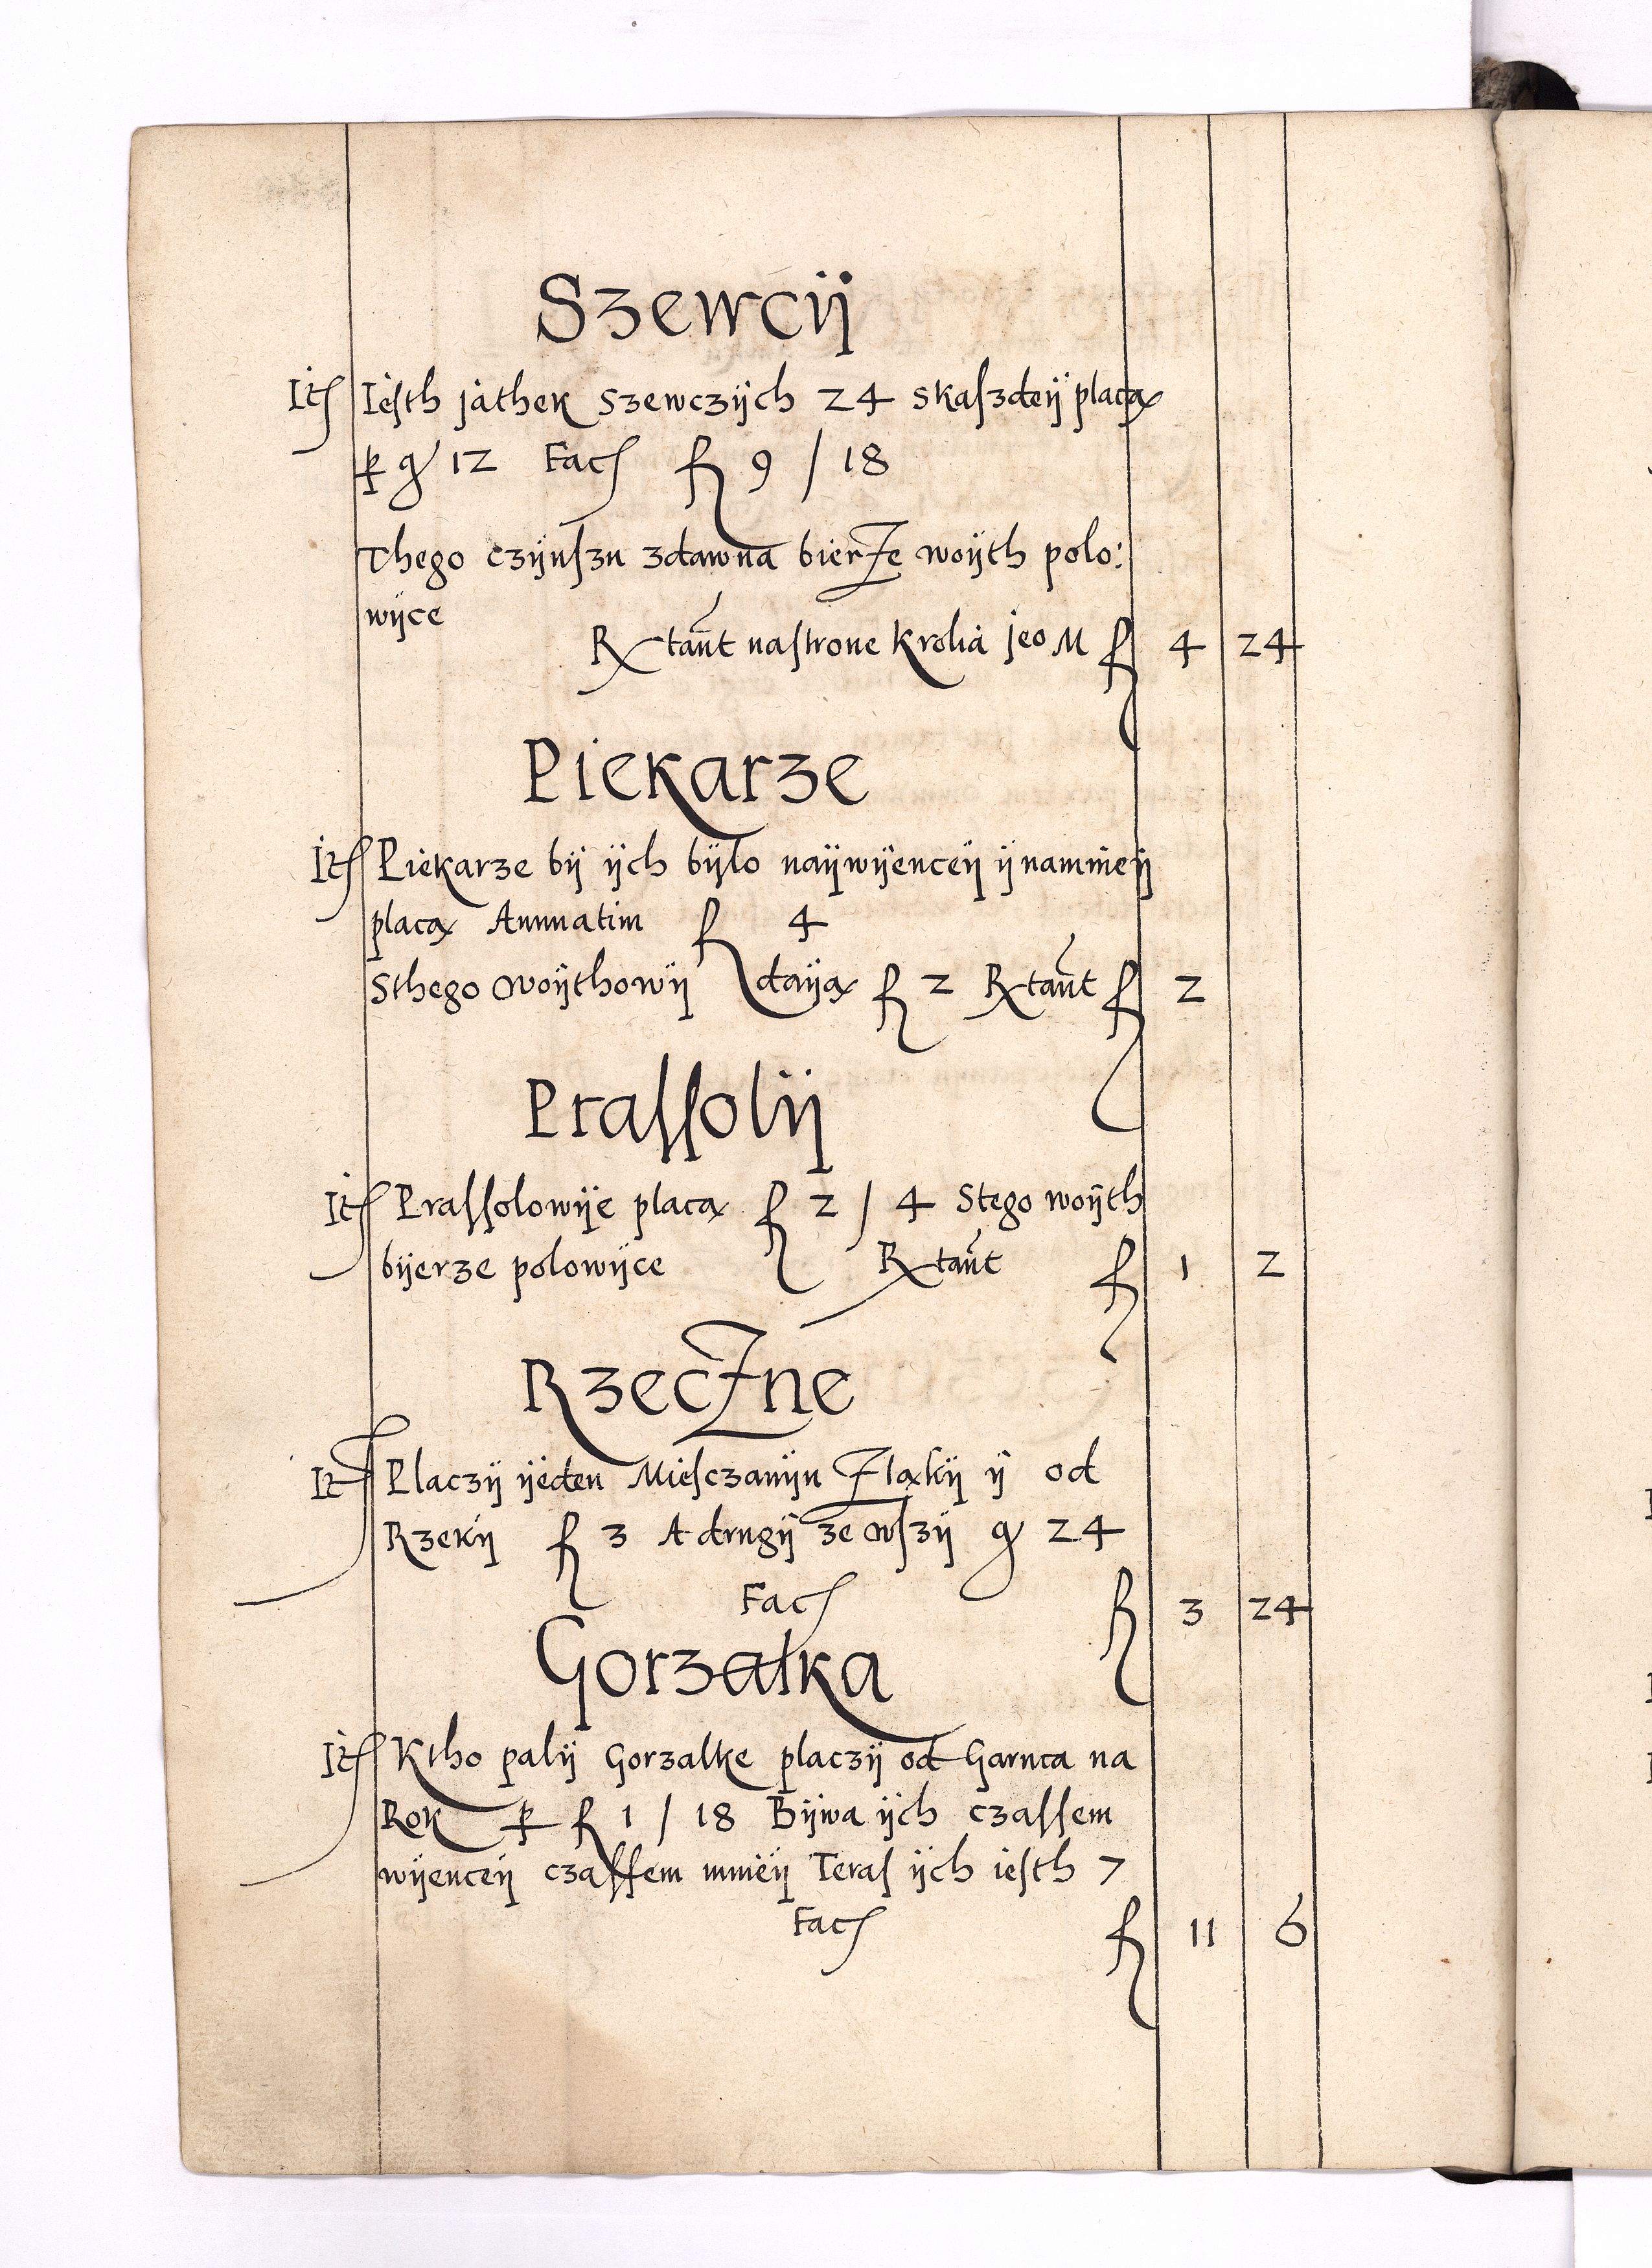 Szewcij
Itß Iesth jathek Szewczÿch 24 skaszdeÿ placą
ꝑ gͬ 12 Facß fl 9 / 18
Thego czÿnszu zdawna bierze woÿth polo:
wÿce
Rxtant nastrone Krolia jeo M fl 4 24
Piekarze
Itß Piekarze bÿ ÿch bÿlo naÿwÿenceÿ ÿ namnieÿ
placą Annuatim fl 4
Sthego Woÿthowÿ daÿą fl 2 Rxtant fl 2
Prassolij
Itß Prassolowÿe placą fl 2 / 4 Stego woÿth
bÿerze polowÿce Rxtant fl 1 2
Rzeczne
Itß Placzÿ ÿeden Miesczanÿn Zląkÿ ÿ od
Rzekÿ fl 3 A drugÿ ze Wszÿ gͬ 24
Facß fl 3 24
Gorzałka
Itß Ktho palÿ Gorzalke placzÿ od Garnca na
Rok ꝑ fl 1 / 18 Bÿwa ÿch czassem
wÿenceÿ czassem mnieÿ Teras ÿch iesth 7
Facß fl 11 6